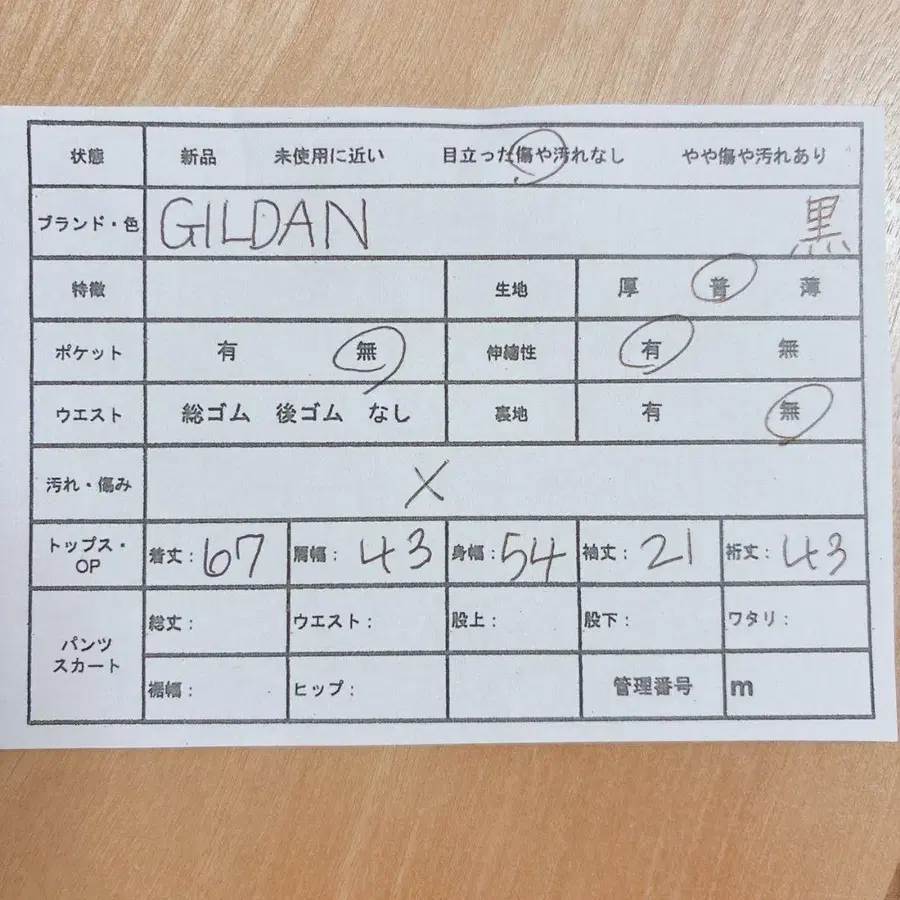 状態 新品 未使用に近い 目立った傷や汚れなし やや傷や汚れあり
ブランド・色 GILDAN 黒
特徴 生地 厚 普 薄
ポケット 有 無 伸縮性 有 無
ウエスト 総ゴム 後ゴム なし 裏地 有 無
汚れ・傷み X
トップス・OP 着丈：67 肩幅：43 身幅：54 袖丈：21 裄丈：43
パンツ スカート 総丈： ウエスト： 股上： 股下： ワタリ：
裾幅： ヒップ： 管理番号 m